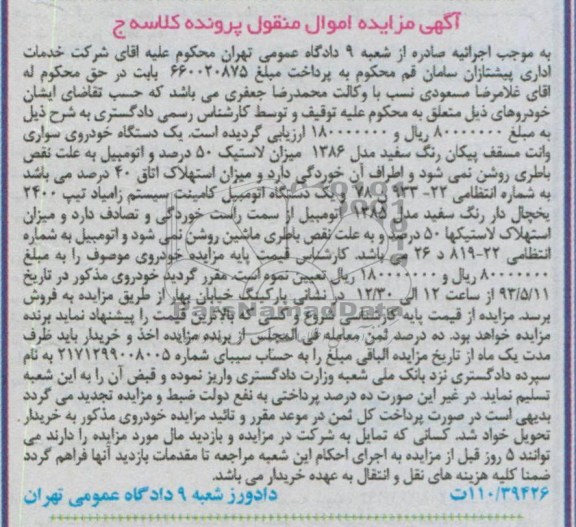 آگهی مزایده اموال منقول پرونده کلاسه ج
به موجب اجرائیه صادره از شعبه ۹ دادگاه عمومی تهران محکوم علیه اقای شرکت خدمات
اداری پیشتازان سامان قم محکوم به پرداخت مبلغ ۶۶۰۰۲۰۸۷۵ بابت در حق محکوم له
اقای غلامرضا مسعودی نسب با وکالت محمدرضا جعفری می باشد که حسب تقاضای ایشان
خودروهای ذیل متعلق به محکوم علیه توقیف و توسط کارشناس رسمی دادگستری به شرح ذیل
به مبلغ ۸۰۰۰۰۰۰۰ ریال و ۱۸۰۰۰۰۰۰۰ ارزیابی گردیده است. یک دستگاه خودروی سواری
وانت مسقف پیکان رنگ سفید مدل ۱۳۸۶ میزان لاستیک ۵۰ درصد و اتومبیل به علت نقص
باطری روشن نمی شود و اطراف آن خوردگی دارد و میزان استهلاک اتاق ۴۰ درصد می باشد
به شماره انتظامی ۲۲- ۹۳۳ ۷۸ و یک دستگاه اتومبیل کامینت سیستم زامیاد تیپ ۲۴۰۰
یخچال دار رنگ سفید مدل ۱۳۸۵ اتومبیل از سمت راست خوردگی و تصادف دارد و میزان
استهلاک لاستیکها ۵۰ درصد و به علت نقص باطری ماشین روشن نمی شود و اتومبیل به شماره
انتظامی ۲۲-۸۱۹ د ۲۶ می باشد. کارشناس قیمت پایه مزایده خودروی موصوف را به مبلغ
۸۰۰۰۰۰۰۰ ریال و ۱۸۰۰۰۰۰۰۰ ریال تعیین نموه است. مقرر گردید خودروی مذکور در تاریخ
۹۳/۵/۱۱ از ساعت ۱۲ الی ۱۲/۳۰ در نشانی پارکینگ خیابان بهار از طریق مزایده به فروش
برسد. مزایده از قیمت پایه کارشناسی شروع و کسی که بالاترین قیمت را پیشنهاد نماید برنده
مزایده خواهد بود. ده درصد ثمن معامله فی المجلس از برنده مزایده اخذ و خریدار باید ظرف
مدت یک ماه از تاریخ مزایده الباقی مبلغ را به حساب سیبای شماره ۲۱۷۱۲۹۹۰۰۸۰۰۵ به نام
سپرده دادگستری نزد بانک ملی شعبه وزارت دادگستری واریز نموده و قبض آن را به این شعبه
تسلیم نماید. در غیر این صورت ده درصد پرداختی به نفع دولت ضبط و مزایده تجدید می گردد
بدیهی است در صورت پرداخت کل ثمن در موعد مقرر و تائید مزایده خودروی مذکور به خریدار
تحویل خواد شد. کسانی که تمایل به شرکت در مزایده و بازدید مال مورد مزایده را دارند می
توانند ۵ روز قبل از مزایده به اجرای احکام این شعبه مراجعه تا مقدمات بازدید آنها فراهم گردد
ضمنا کلیه هزینه های نقل و انتقال به عهده خریدار می باشد.
۱۱۰/۳۹۴۲۶ت دادورز شعبه ۹ دادگاه عمومی تهران